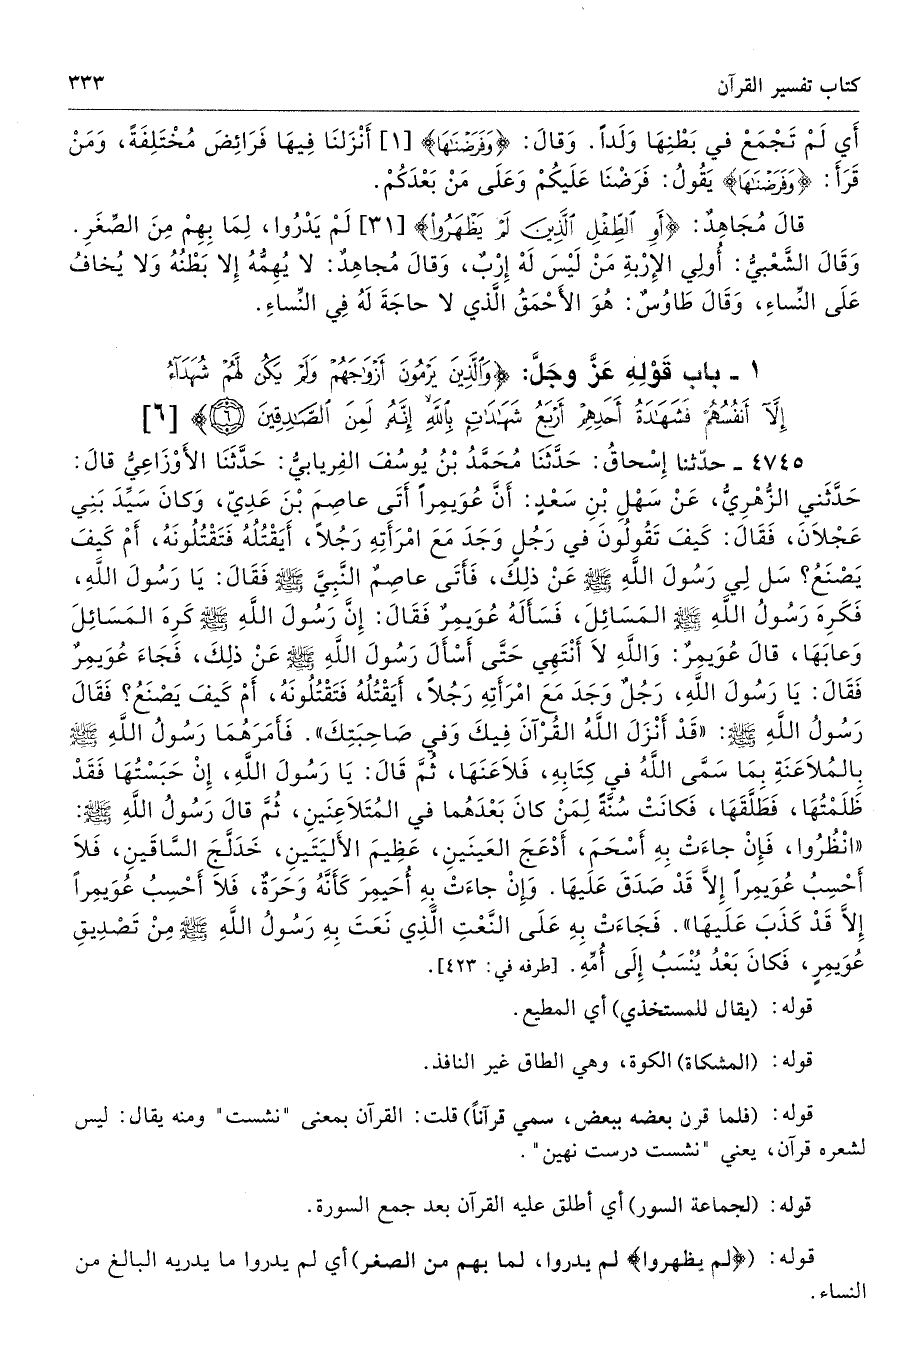 كتاب تفسير القرآن ٣٣٣
أَي لَمْ تَجْمَعْ في بَطْنِهَا وَلَداً. وَقالَ: ﴿وَفَرَضْنَاهَا﴾ [١] أَنْزَلنَا فِيهَا فَرَائِضَ مُخْتَلِفَةً، وَمَنْ
قَرَأَ: ﴿وَفَرَضْنَاهَا﴾ يَقُولُ: فَرَضْنَا عَلَيكُمْ وَعَلَى مَنْ بَعْدَكُمْ.
قالَ مُجَاهِدٌ: ﴿أَوِ الطِّفْلِ الَّذِينَ لَمْ يَظْهَرُوا﴾ [٣١] لَمْ يَدْرُوا، لِمَا بِهِمْ مِنَ الصِّغَرِ.
وَقَالَ الشَّعْبِيُّ: أُولِي الإِرْبةِ مَنْ لَيْسَ لَهُ إِرْبٌ، وَقالَ مُجاهِدٌ: لا يُهِمُّهُ إِلا بَطْنُهُ وَلا يُخافُ
عَلَى النِّساءِ، وَقَالَ طَاوُسٌ: هُوَ الأَحْمَقُ الَّذي لا حاجَةَ لَهُ فِي النِّساءِ.
١ ـ باب قَوْلِهِ عَزَّ وجَلَّ: ﴿وَالَّذِينَ يَرْمُونَ أَزْوَاجَهُمْ وَلَمْ يَكُن لَّهُمْ شُهَدَاءُ
إِلَّا أَنفُسُهُمْ فَشَهَادَةُ أَحَدِهِمْ أَرْبَعُ شَهَادَاتٍ بِاللَّهِ إِنَّهُ لَمِنَ الصَّادِقِينَ ٦﴾ [٦]
٤٧٤٥ ـ حدّثنا إِسْحاقُ: حَدَّثَنَا مُحَمَّدُ بْنُ يُوسُفَ الفِريابيُّ: حَدَّثَنَا الأَوْزَاعِيُّ قالَ:
حَدَّثَني الزُّهْرِيُّ، عَنْ سَهْلِ بْنِ سَعْدٍ: أَنَّ عُوَيمِراً أَتَى عاصِمَ بْنَ عَدِيّ، وَكانَ سَيِّدَ بَنِي
عَجْلاَنَ، فَقَالَ: كَيفَ تَقُولُونَ في رَجُلٍ وَجَدَ مَعَ امْرَأَتِهِ رَجُلاً، أَيَقْتُلُهُ فَتَقْتُلُونَهُ، أَمْ كَيفَ
يَصْنَعُ؟ سَل لِي رَسُولَ اللَّهِ ﷺ عَنْ ذلِكَ، فَأَتَى عاصِمٌ النَّبِيَّ ﷺ فَقَالَ: يَا رَسُولَ اللَّهِ،
فَكَرِهَ رَسُولُ اللَّهِ ﷺ المَسَائِلَ، فَسَأَلَهُ عُوَيمِرٌ فَقَالَ: إِنَّ رَسُولَ اللَّهِ ﷺ كَرِهَ المَسَائِلَ
وَعابَهَا، قالَ عُوَيمِرٌ: وَاللَّهِ لاَ أَنْتَهِي حَتَّى أَسْأَلَ رَسُولَ اللَّهِ ﷺ عَنْ ذلِكَ، فَجَاءَ عُوَيمِرٌ
فَقَالَ: يَا رَسُولَ اللَّهِ، رَجُلٌ وَجَدَ مَعَ امْرَأَتِهِ رَجُلاً، أَيَقْتُلُهُ فَتَقْتُلُونَهُ، أَمْ كَيفَ يَصْنَعُ؟ فَقَالَ
رَسُولُ اللَّهِ ﷺ: «قَدْ أَنْزَلَ اللَّهُ القُرْآنَ فِيكَ وَفي صَاحِبَتِكَ». فَأَمَرَهُمَا رَسُولُ اللَّهِ ﷺ
بِالمُلاَعَنَةِ بِمَا سَمَّى اللَّهُ في كِتَابِهِ، فَلاَعَنَهَا، ثُمَّ قَالَ: يَا رَسُولَ اللَّهِ، إِنْ حَبَسْتُهَا فَقَدْ
ظَلَمْتُهَا، فَطَلَّقَهَا، فَكانَتْ سُنَّةً لِمَنْ كانَ بَعْدَهُما في المُتَلاَعِنَينِ، ثُمَّ قالَ رَسُولُ اللَّهِ ﷺ:
«انْظُرُوا، فَإِنْ جاءَتْ بِهِ أَسْحَمَ، أَدْعَجَ العَينَينِ، عَظِيمَ الأَليَتَينِ، خَدَلَّجَ السَّاقَينِ، فَلاَ
أَحْسِبُ عُوَيمِراً إِلاَّ قَدْ صَدَقَ عَلَيهَا. وَإِنْ جاءَتْ بِهِ أُحَيمِرَ كَأَنَّهُ وَحَرَةٌ، فَلاَ أَحْسِبُ عُوَيمِراً
إِلاَّ قَدْ كَذَبَ عَلَيهَا». فَجَاءَتْ بِهِ عَلَى النَّعْتِ الَّذِي نَعَتَ بِهِ رَسُولُ اللَّهِ ﷺ مِنْ تَصْدِيقِ
عُوَيمِرٍ، فَكانَ بَعْدُ يُنْسَبُ إِلَى أُمِّهِ. [طرفه في: ٤٢٣].
قوله: (يقال للمستخذي) أي المطيع.
قوله: (المشكاة) الكوة، وهي الطاق غير النافذ.
قوله: (فلما قرن بعضه ببعض، سمي قرآناً) قلت: القرآن بمعنى "نشست" ومنه يقال: ليس
لشعره قرآن، يعني "نشست درست نهين".
قوله: (لجماعة السور) أي أطلق عليه القرآن بعد جمع السورة.
قوله: (﴿لم يظهروا﴾ لم يدروا، لما بهم من الصغر) أي لم يدروا ما يدريه البالغ من
النساء.